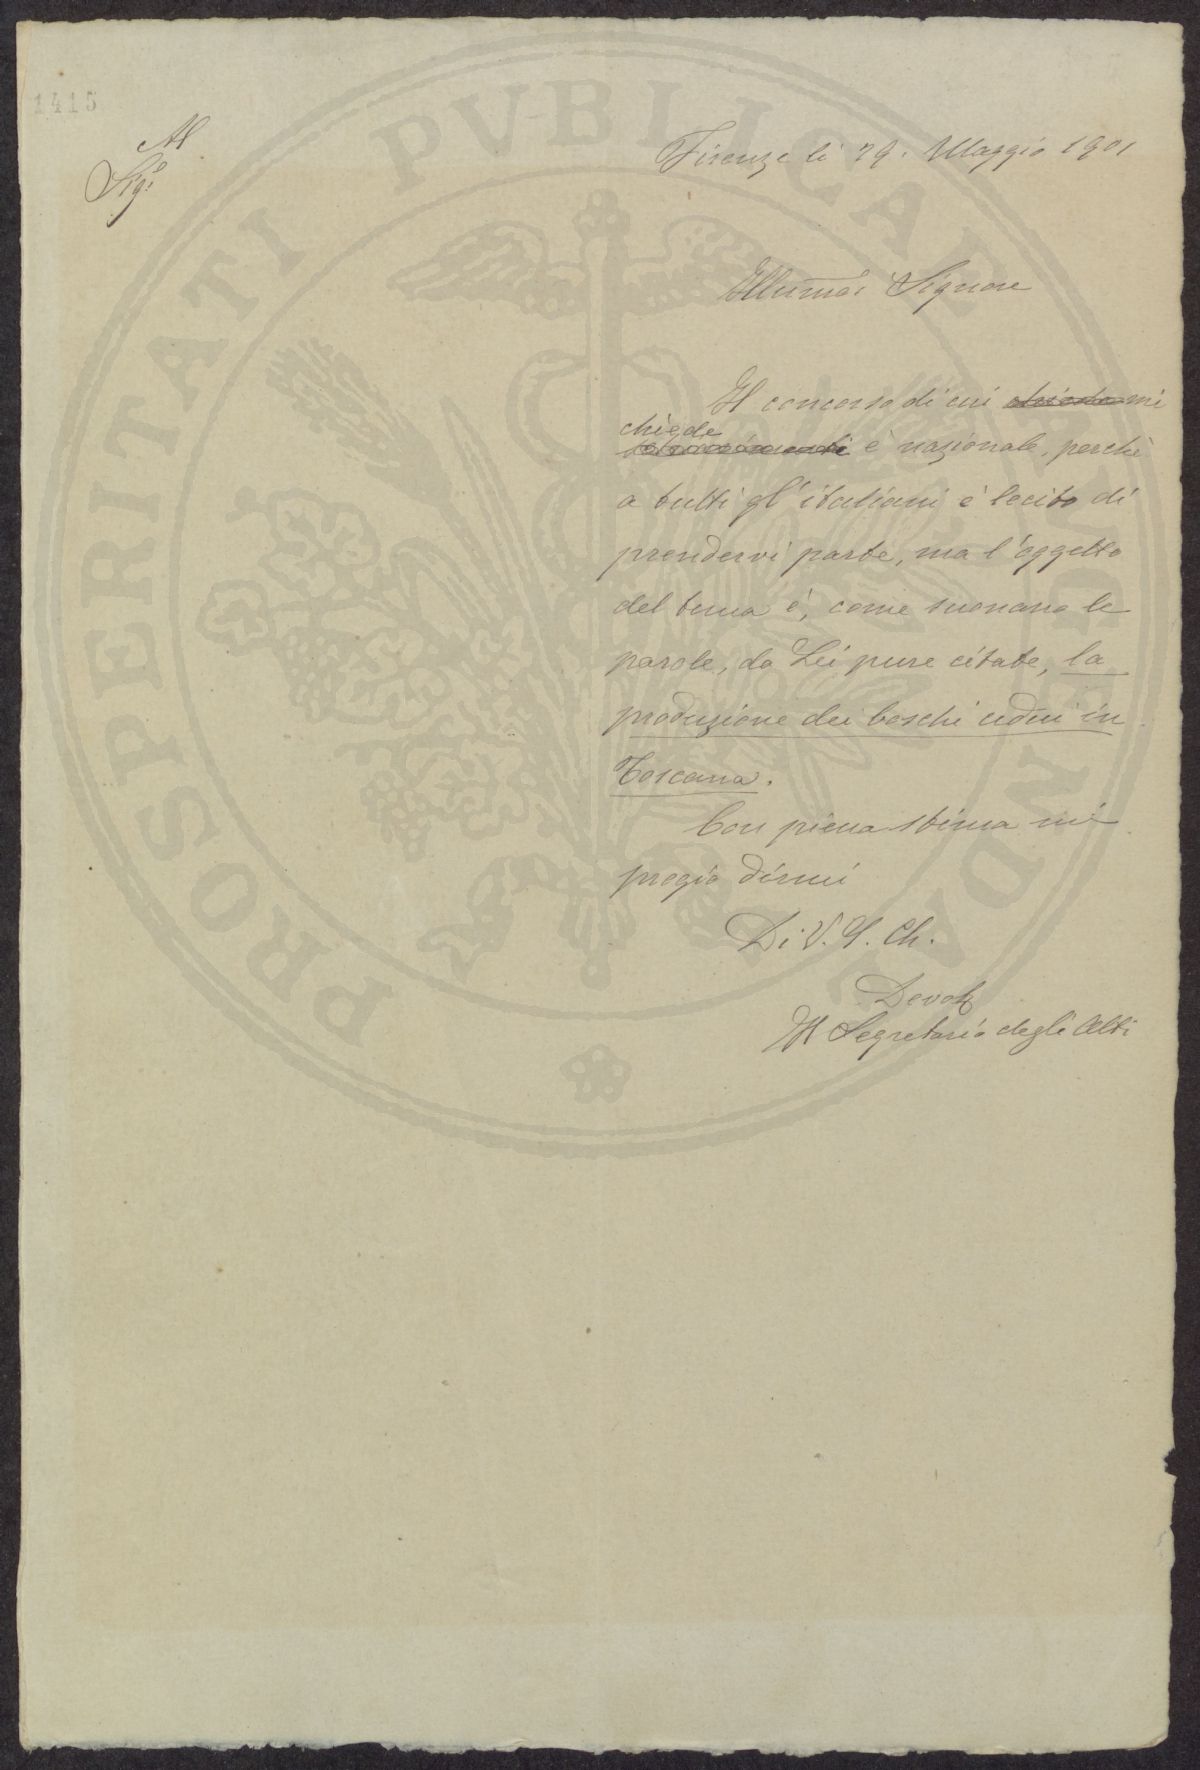 1415
Al
Sigr
Firenze li 29. Maggio 1901
Illumo Signore
Il concorso di cui chiede mi
chiede
è nazionale, perchè
a tutti gl'italiani è lecito di
prendervi parte, ma l'oggetto
del tema è, come suonano le
parole, da Lei pure citate, la
produzione dei boschi cedui in
Toscana.
Con piena stima mi
pregio dirmi
Di V. S. Ch.
Devoto
Il Segretario degli Atti
PROSPERITATI PVBLICAE AVGENDAE